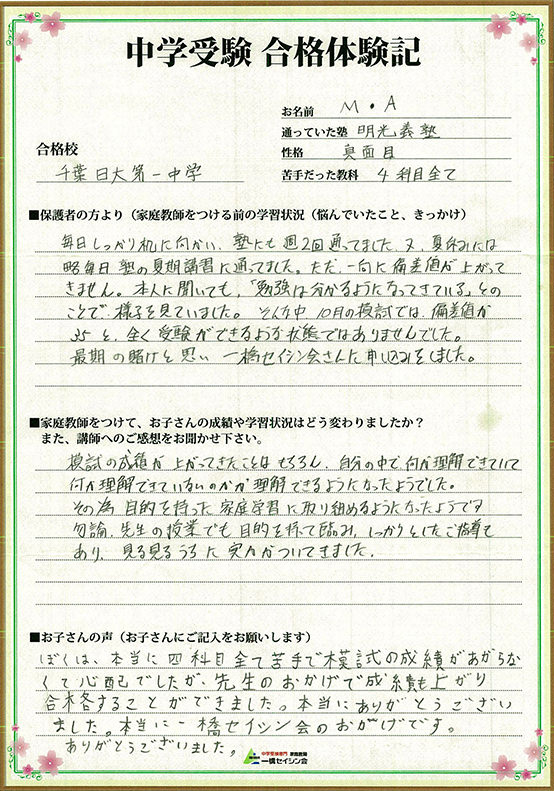 中学受験 合格体験記
お名前 M・A
通っていた塾 明光義塾
合格校
性格 真面目
千葉日大第一中学
苦手だった教科 4科目全て
■保護者の方より（家庭教師をつける前の学習状況（悩んでいたこと、きっかけ）
毎日しっかり机に向かい、塾にも週2回通ってました。又、夏休みには
略毎日塾の夏期講習に通ってました。ただ、一向に偏差値が上がって
きません。本人に聞いても、「勉強は分かるようになってきている」との
ことで、様子を見ていました。そんな中、10月の模試では、偏差値が
35と、全く受験ができるような状態ではありませんでした。
最期の賭けと思い 一橋セイシン会さんに申し込みをしました。
■家庭教師をつけて、お子さんの成績や学習状況はどう変わりましたか？
また、講師へのご感想をお聞かせ下さい。
模試の成績が上がってきたことはもちろん、自分の中で、何が理解できていて
何が理解できていないのかが理解できるようになったようでした。
その為 目的を持った家庭学習に取り組めるようになったようです
勿論、先生の授業でも目的を持って臨み、しっかりとしたご指導も
あり、見る見るうちに実力がついてきました。
■お子さんの声（お子さんにご記入をお願いします）
ぼくは、本当に四科目全て苦手で模試の成績があがらな
くて心配でしたが、先生のおかげで成績も上がり
合格することができました。本当にありがとうござい
ました。本当に一橋セイシン会のおかげです。
ありがとうございました。
中学受験専門 家庭教師
一橋セイシン会